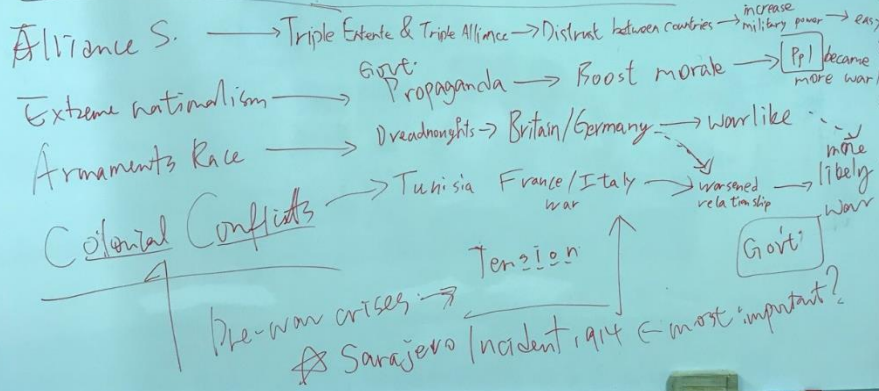 Alliance S. → Triple Entente & Triple Alliance → Distrust between countries → increase military power → eas
Extreme nationalism → Govt. Propaganda → Boost morale → Ppl became more war
Armaments Race → Dreadnoughts → Britain/Germany → warlike
more likely war
Colonial Conflicts → Tunisia France/Italy war → worsened relationship →
Gov't
Pre-war crises → Tension
☆ Sarajevo Incident 1914 ← most important?